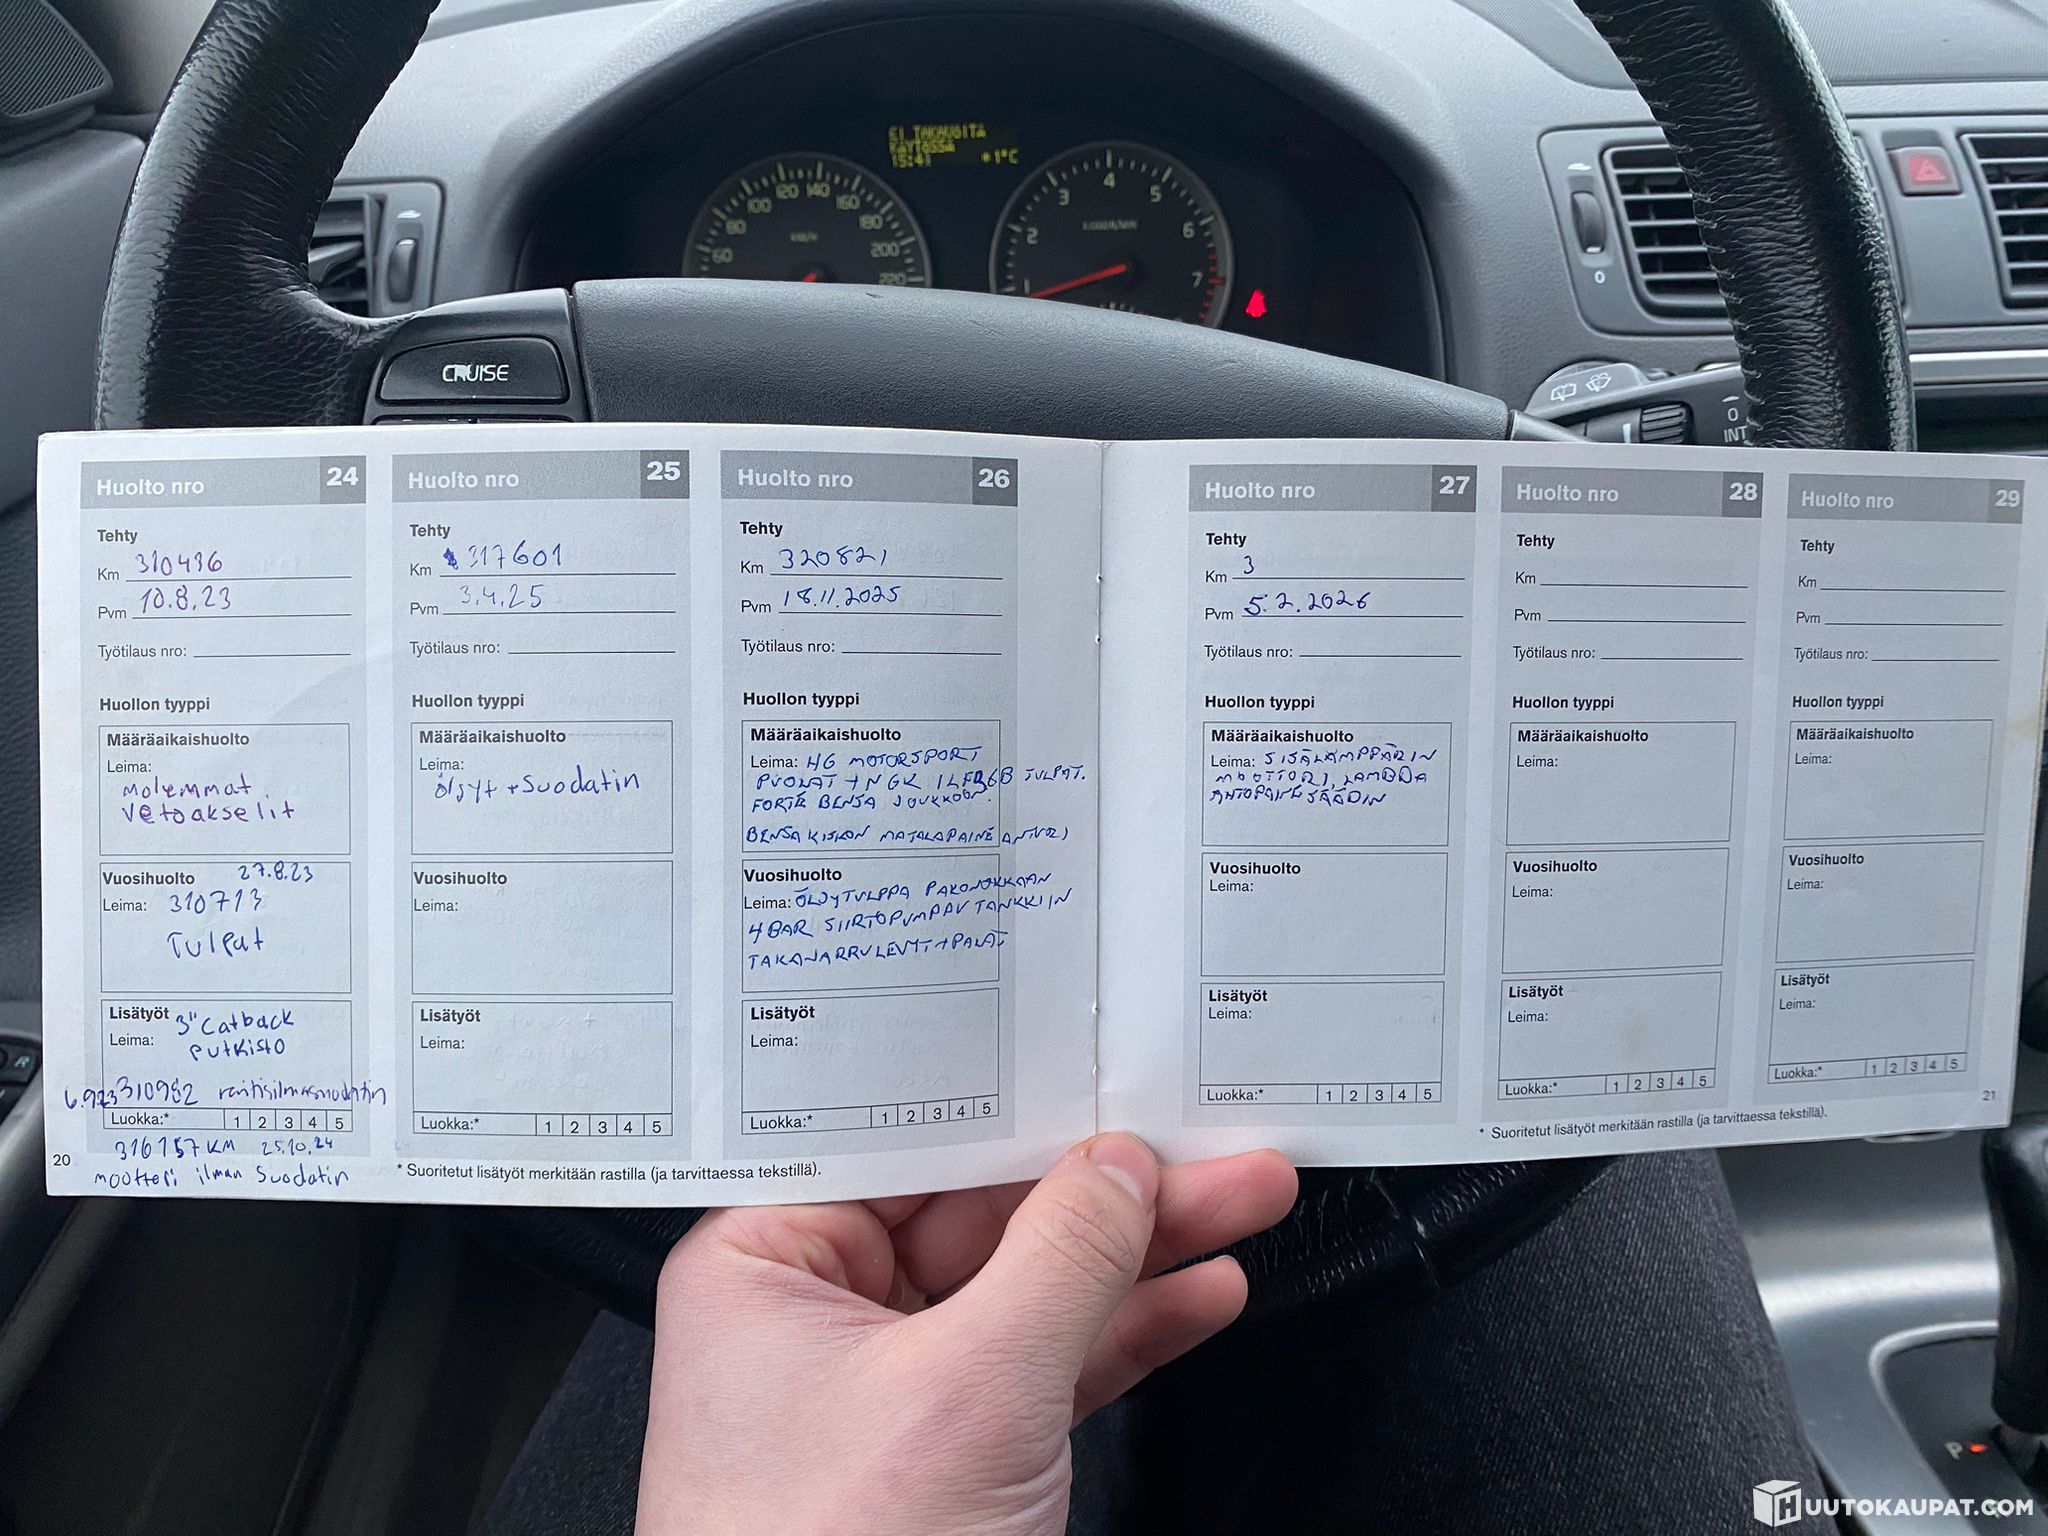 EI TAKAUSITA
KÄYTÖSSÄ
15:41 +1°C
60 80 100 120 140 160 180 200 220
KM/H
1 2 3 4 5 6 7
CRUISE
0
0
INT
Huolto nro 24
Tehty
Km 310436
Pvm 10.8.23
Työtilaus nro:
Huollon tyyppi
Määräaikaishuolto
Leima:
Molemmat
Vetoakselit
Vuosihuolto 27.8.23
Leima: 310713
Tulpat
Lisätyöt 3" Catback
Leima: putkisto
6.9.23 310982
Luokka:* 1 2 3 4 5
316157 KM 25.10.24
moottori ilman Suodatin
20
Huolto nro 25
Tehty
Km 317601
Pvm 3.4.25
Työtilaus nro:
Huollon tyyppi
Määräaikaishuolto
Leima:
öljyt + Suodatin
Vuosihuolto
Leima:
Lisätyöt
Leima:
Luokka:* 1 2 3 4 5
* Suoritetut lisätyöt merkitään rastilla (ja tarvittaessa tekstillä).
Huolto nro 26
Tehty
Km 320821
Pvm 18.11.2025
Työtilaus nro:
Huollon tyyppi
Määräaikaishuolto
Leima: HG MOTORSPORT
PUOLAT + NGK TULPAT.
FORTE BENSA JOUKKOON.
BENSAKISKON MATALAPAINE ANTURI
Vuosihuolto
Leima: ÖLJYTULPPA PAKONOKKAAN
4 BAR SIIRTOPUMPPU TANKKIIN
TAKAJARRULEVYT + PALAT
Lisätyöt
Leima:
Luokka:* 1 2 3 4 5
Huolto nro 27
Tehty
Km 3
Pvm 5.2.2026
Työtilaus nro:
Huollon tyyppi
Määräaikaishuolto
Leima: SISÄLÄMPPÄRIN
MOOTTORI, LAMBDA
AHTOPAINESÄÄDIN
Vuosihuolto
Leima:
Lisätyöt
Leima:
Luokka:* 1 2 3 4 5
Huolto nro 28
Tehty
Km
Pvm
Työtilaus nro:
Huollon tyyppi
Määräaikaishuolto
Leima:
Vuosihuolto
Leima:
Lisätyöt
Leima:
Luokka:* 1 2 3 4 5
Huolto nro 29
Tehty
Km
Pvm
Työtilaus nro:
Huollon tyyppi
Määräaikaishuolto
Leima:
Vuosihuolto
Leima:
Lisätyöt
Leima:
Luokka:* 1 2 3 4 5
21
* Suoritetut lisätyöt merkitään rastilla (ja tarvittaessa tekstillä).
R
P
HUUTOKAUPAT.COM